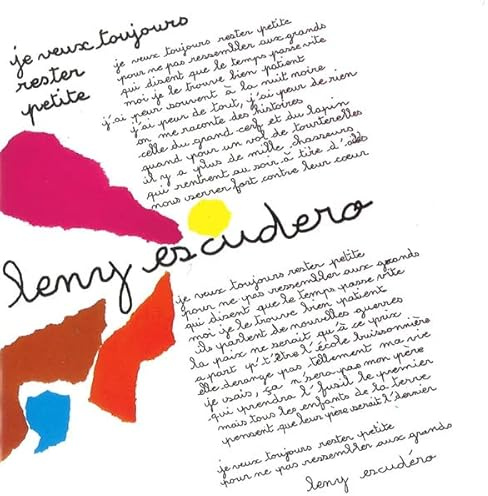 je veux toujours
rester
petite
je veux toujours rester petite
pour ne pas ressembler aux grands
qui disent que le temps passe vite
moi je le trouve bien patient
j'ai peur souvent à la nuit noire
j'ai peur de tout, j'ai peur de rien
on me raconte des histoires
celle du grand cerf et du lapin
quand par un vol de tourterelles
il y a plus de mille chasseurs
qui rentrent au soir à tire d'
nous serrer fort contre leur cœur
leny escudero
je veux toujours rester petite
pour ne pas ressembler aux grands
qui disent que le temps passe vite
moi je le trouve bien patient
ils parlent de nouvelles guerres
la paix ne serait qu'à ce prix
a part p't'être l'école buissonnière
elle derange pas tellement ma vie
je sais, ça n'sera pas mon père
qui prendra l'fusil le premier
mais tous les enfants de la terre
pensent que leur père serait l'dernier
je veux toujours rester petite
pour ne pas ressembler aux grands
leny escudéro